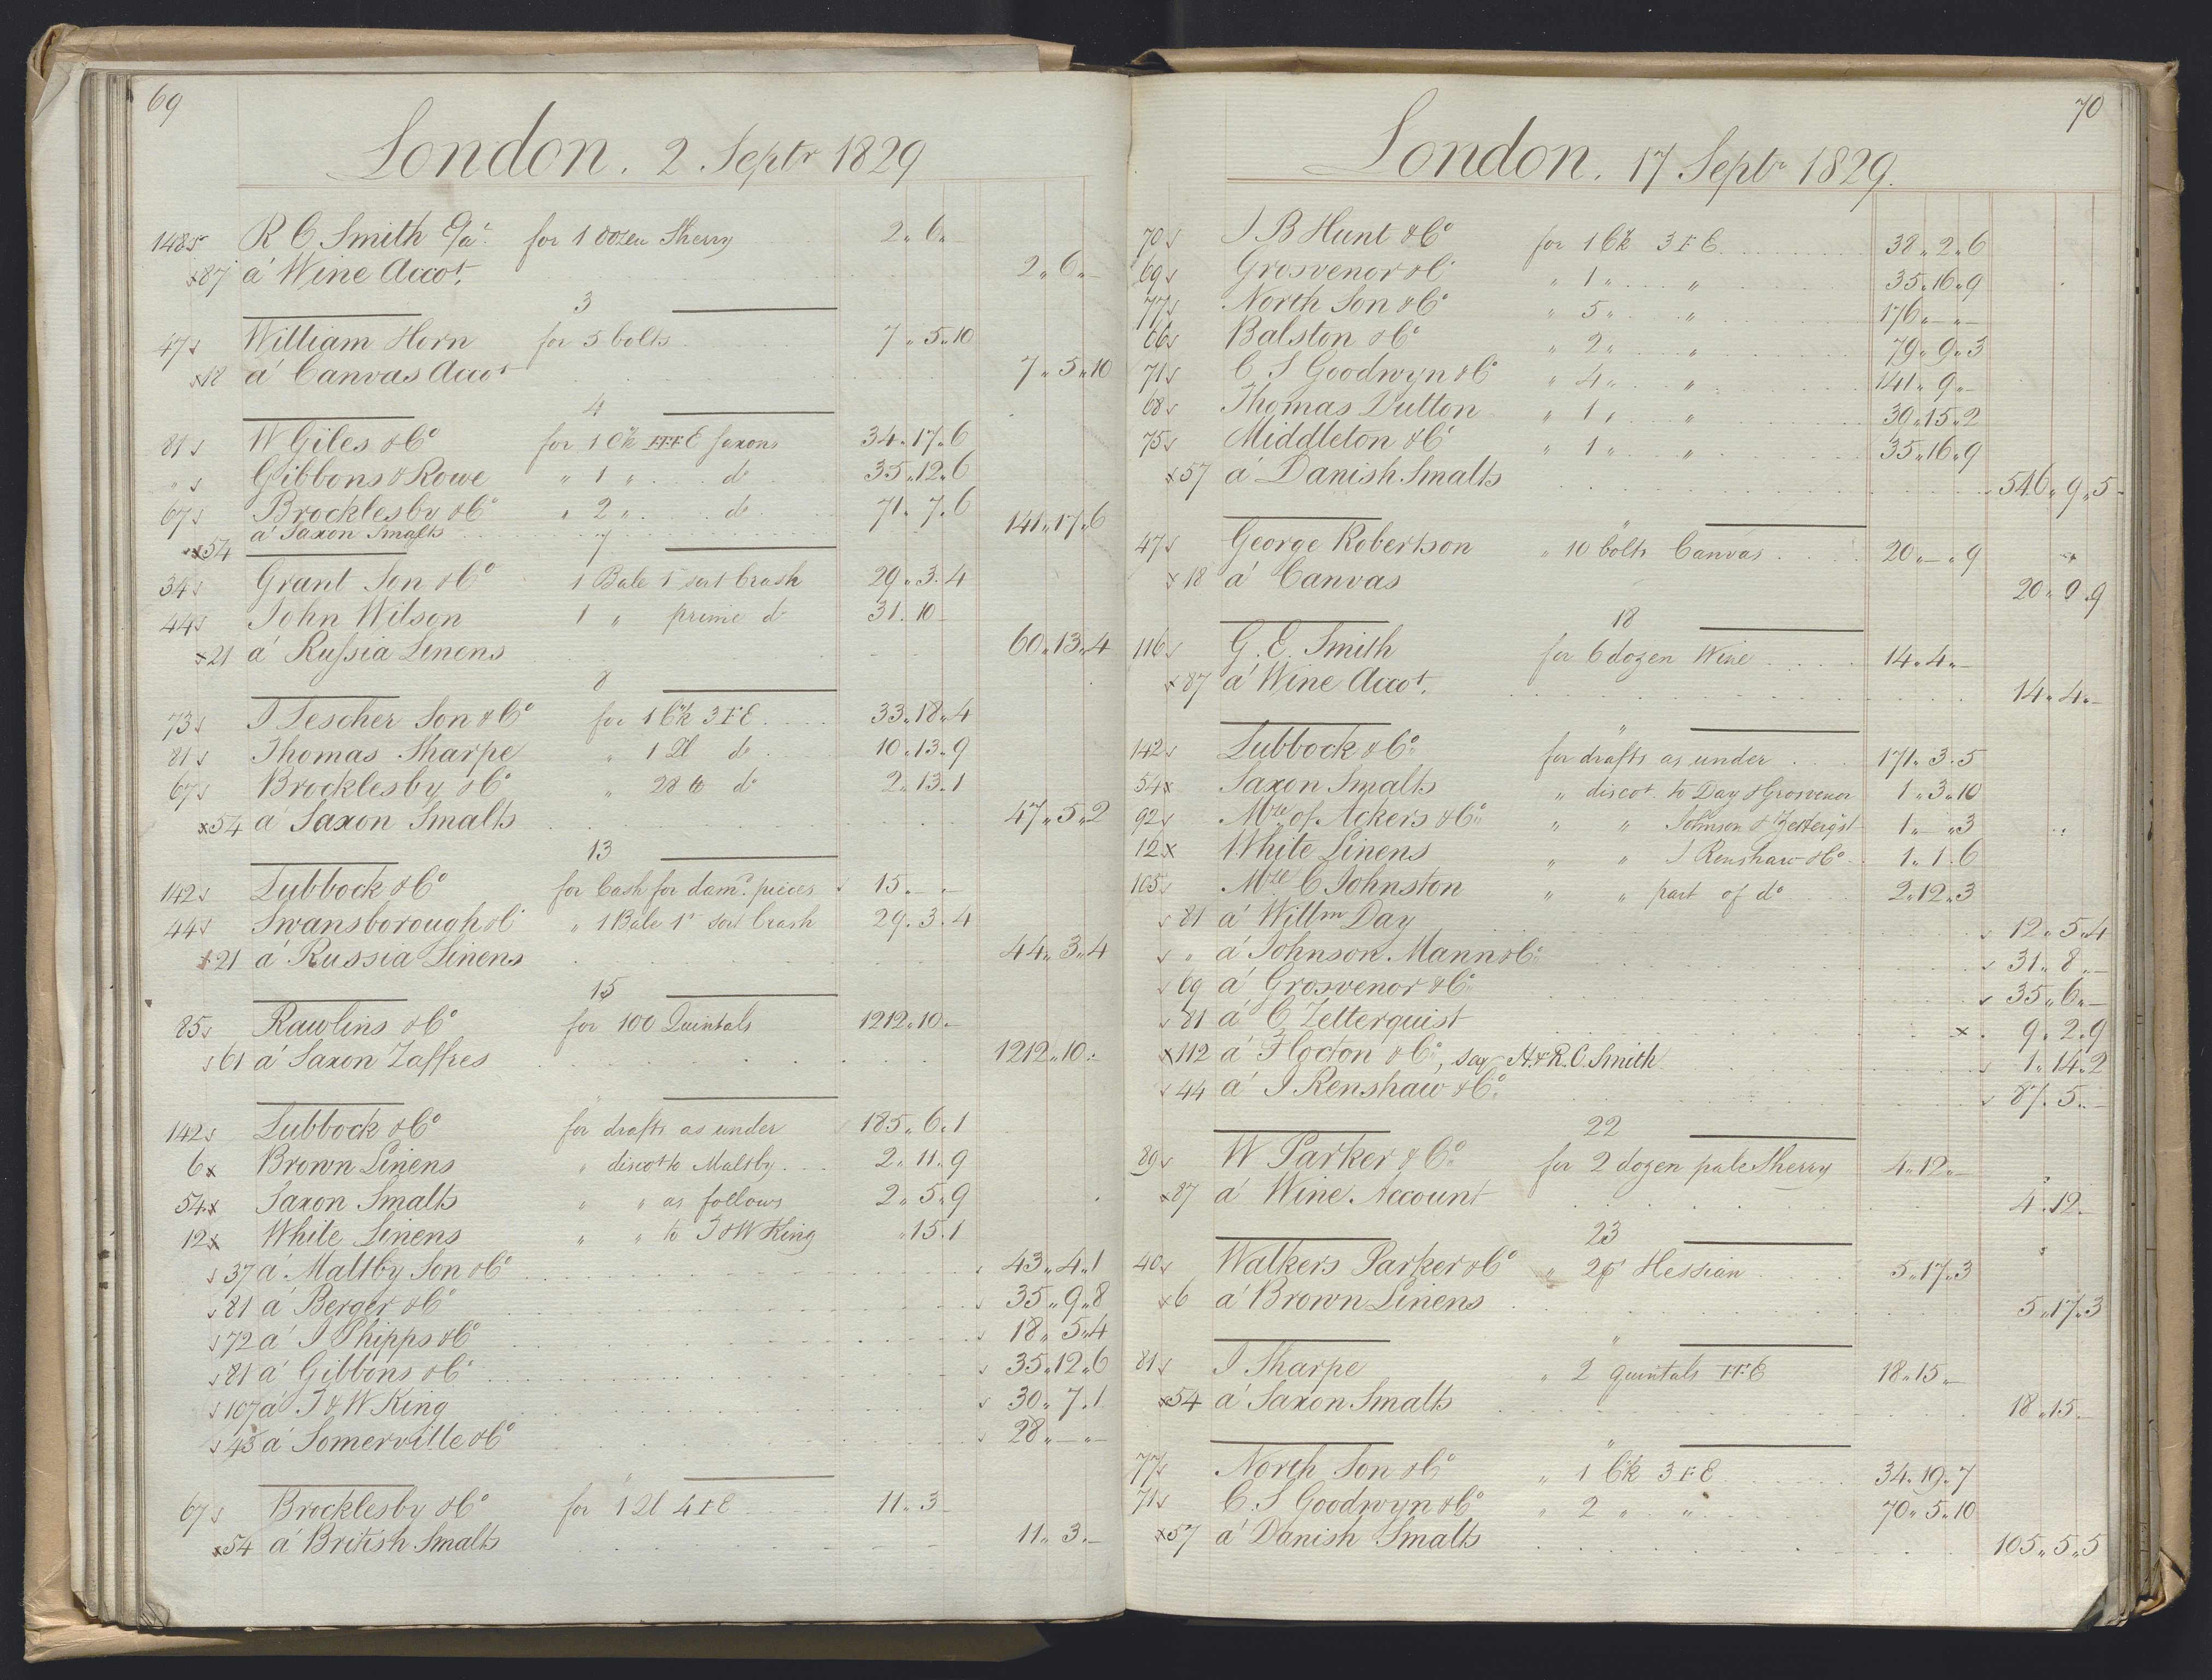 69
London. 2 Septr 1829
148 R C Smith for 1 dozen Sherry 2 " 6 " —
87 a' Wine Accot. 2 " 6 " —
3
47 William Horn for 5 bolts 7 " 5 " 10
18 a' Canvas Accot 7 " 5 " 10
4
81 W Giles & Co for 1 Ck FFFE Saxons 34 " 17 " 6
" Gibbons & Rowe " 1 " do 35 " 12 " 6
67 Brocklesby & Co " 2 " do 71 " 7 " 6
54 a' Saxon Smalts 141 " 17 " 6
7
34 Grant Son & Co 1 Bale 1 sort Crash 29 " 3 " 4
44 John Wilson 1 " prime do 31 " 10 —
21 a' Russia Linens 60 " 13 " 4
8
73 I Tescher Son & Co for 1 Ck 3 FE 33 " 18 " 4
81 Thomas Sharpe " 1 Ql do 10 " 13 " 9
67 Brocklesby & Co " 28 lb do 2 " 13 " 1
x54 a' Saxon Smalts 47 " 5 " 2
13
142 Lubbock & Co for Cash for damd. pieces 15 " — " —
44 Swansborough & Co " 1 Bale 1 sort Crash 29 " 3 " 4
21 a' Russia Linens 44 " 3 " 4
15
85 Rawlins & Co for 100 Quintals 1212 " 10 " —
61 a' Saxon Zaffres 1212 " 10 " —
"
142 Lubbock & Co for drafts as under 185 " 6 " 1
6x Brown Linens " discot to Maltby 2 " 11 " 9
54x Saxon Smalts " " as follows 2 " 5 " 9
12x White Linens " " to T & W King " 15 " 1
37 a' Maltby Son & Co 43 " 4 " 1
81 a' Berger & Co 35 " 9 " 8
72 a' I Phipps & Co 18 " 5 " 4
81 a' Gibbons & Co 35 " 12 " 6
107 a' T & W King 30 " 7 " 1
43 a' Somerville & Co 28 " — " —
"
67 Brocklesby & Co for 1 Ql 4 FE 11 " 3 —
x54 a' British Smalts 11 " 3 " —
70
London. 17 Septr 1829.
70 I B Hunt & Co for 1 Ck 3 FE 38 " 2 " 6
69 Grosvenor & Co " 1 " " 35 " 16 " 9
77 North Son & Co " 5 " " 176 " — " —
66 Balston & Co " 2 " " 79 " 9 " 3
71 C S Goodwyn & Co " 4 " " 141 " 9 " —
68 Thomas Dutton " 1 " " 39 " 15 " 2
75 Middleton & Co " 1 " " 35 " 16 " 9
x57 a' Danish Smalts 546 " 9 " 5
"
47 George Robertson " 10 bolts Canvas 20 " — " 9
x18 a' Canvas 20 " 0 " 9
18
116 G. E. Smith for 6 dozen Wine 14 " 4 " —
x87 a' Wine Accot. 14 " 4 " —
"
142 Lubbock & Co for drafts as under 171 " 3 " 5
54x Saxon Smalts " discot. to Day & Grosvenor 1 " 3 " 10
92 Mse of Ackers & Co " " Johnson & Zetterqst 1 " — " 3
12x White Linens " " I Renshaw & Co 1 " 1 " 6
105 Mse C Johnston " " part of do 2 " 12 " 3
81 a' Willm Day 12 " 5 " 4
" a' Johnson Mann & Co 31 " 8 " —
69 a' Grosvenor & Co 35 " 6 " —
81 a' C Zetterquist 9 " 2 " 9
x112 a' Flocton & Co, say H. & R. C. Smith 1 " 14 " 2
44 a' I Renshaw & Co 87 " 5 " —
22
89 W Parker & Co for 2 dozen pale Sherry 4 " 12 " —
x87 a' Wine Account 4 " 12 —
23
40 Walkers Parker & Co " 2 ps Hessian 5 " 17 " 3
x6 a' Brown Linens 5 " 17 " 3
"
81 I Sharpe " 2 quintals FFE 18 " 15 " —
x54 a' Saxon Smalts 18 " 15 —
"
77 North Son & Co " 1 Ck 3 FE 34 " 19 " 7
71 C. S Goodwyn & Co " 2 " " 70 " 5 " 10
x57 a' Danish Smalts 105 " 5 " 5